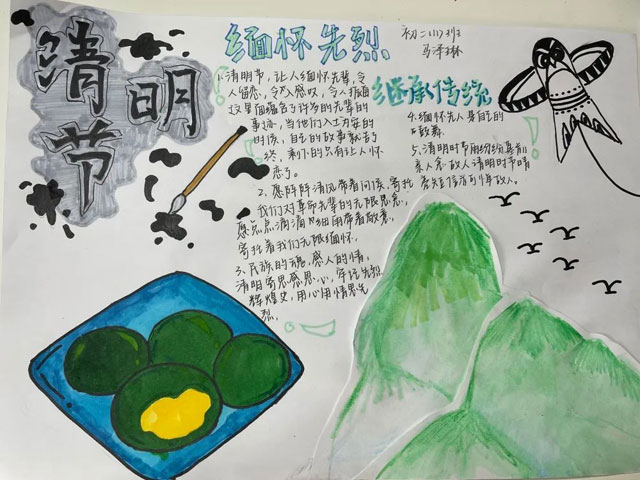 清明节
缅怀先烈
继承传统
初二(1)班
马泽琳
1.清明节,让人缅怀先辈,令
人留恋,令人感叹,令人
这里面蕴含了许多的先辈的
事迹,当他们入土为安的
时候,自己的故事就告了
终,剩下的只有让人怀
恋了。
2.愿阵阵清风带着问候,寄托
我们对革命先辈的无限思念,
愿点点滴滴的细雨带着敬意,
寄托着我们无限缅怀。
3.民族的魂,感人的情,
清明寄思感恩心,牢记先烈
辉煌史,用心用情思先
烈。
4.缅怀先人是自己的
鼓舞。
5.清明时节雨纷纷
亲人念故人清明时节晴
故人。